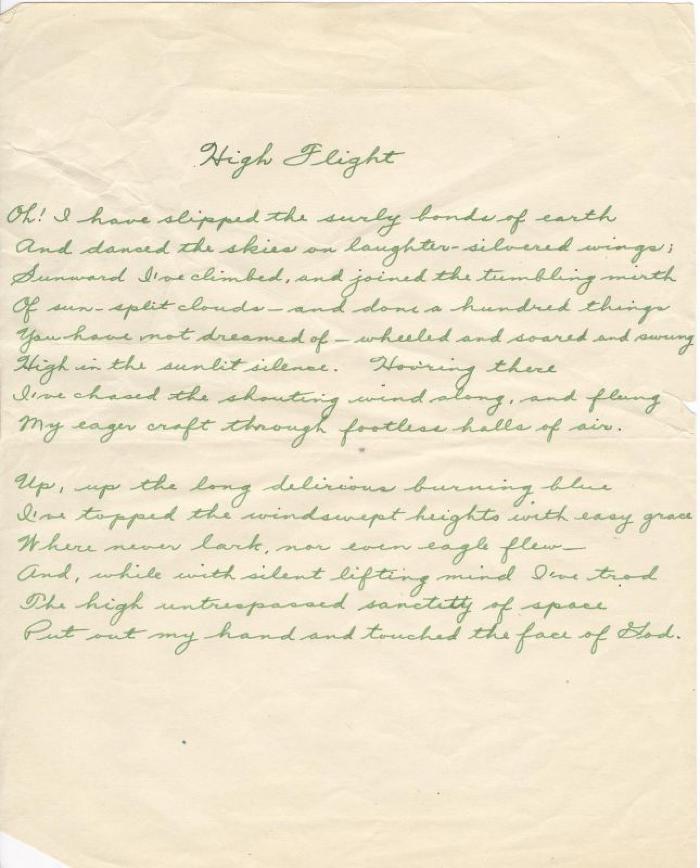 High Flight
Oh! I have slipped the surly bonds of earth
And danced the skies on laughter-silvered wings;
Sunward I've climbed, and joined the tumbling mirth
Of sun-split clouds - and done a hundred things
You have not dreamed of - wheeled and soared and swung
High in the sunlit silence. Hov'ring there
I've chased the shouting wind along, and flung
My eager craft through footless halls of air.
Up, up the long delirious burning blue
I've topped the windswept heights with easy grace
Where never lark, nor even eagle flew—
And, while with silent lifting mind I've trod
The high untrespassed sanctity of space
Put out my hand and touched the face of God.